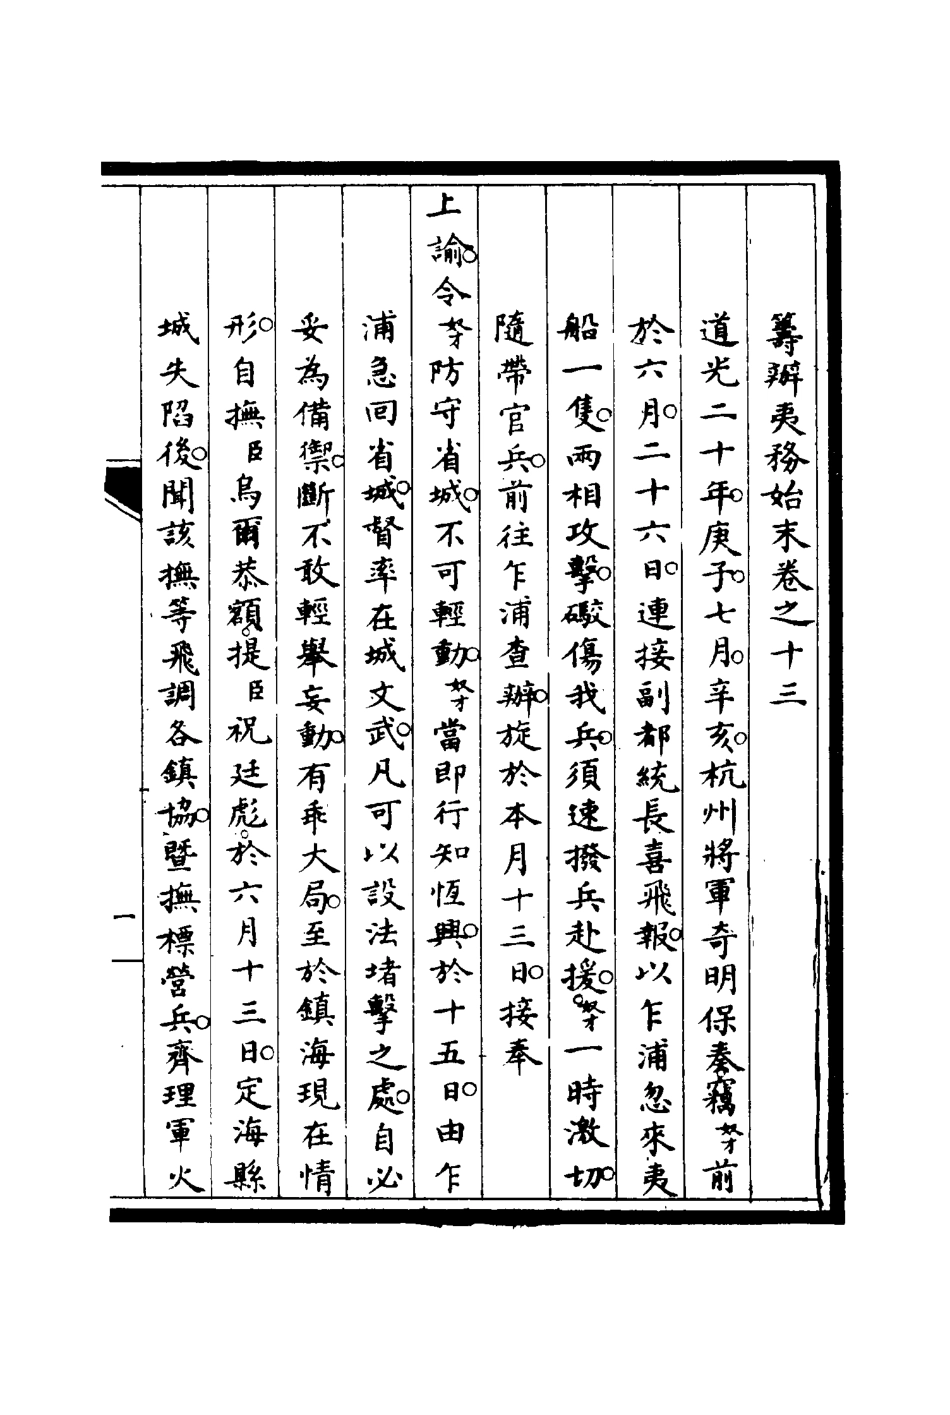 籌辦夷務始末卷之十三
道光二十年。庚子。七月。辛亥。杭州將軍奇明保奏。竊奴才前
於六月。二十六日。連接副都統長喜飛報。以乍浦忽來夷
船一隻。兩相攻擊。礮傷我兵。須速撥兵赴援。奴才一時激切。
隨帶官兵。前往乍浦查辦。旋於本月十三日。接奉
上諭。令奴才防守省城。不可輕動。奴才當即行知恆興。於十五日。由乍
浦急回省城。督率在城文武。凡可以設法堵擊之處。自必
妥為備禦。斷不敢輕舉妄動。有乖大局。至於鎮海現在情
形。自撫臣烏爾恭額。提臣祝廷彪。於六月十三日。定海縣
城失陷後。聞該撫等飛調各鎮協。暨撫標營兵。齊理軍火
一